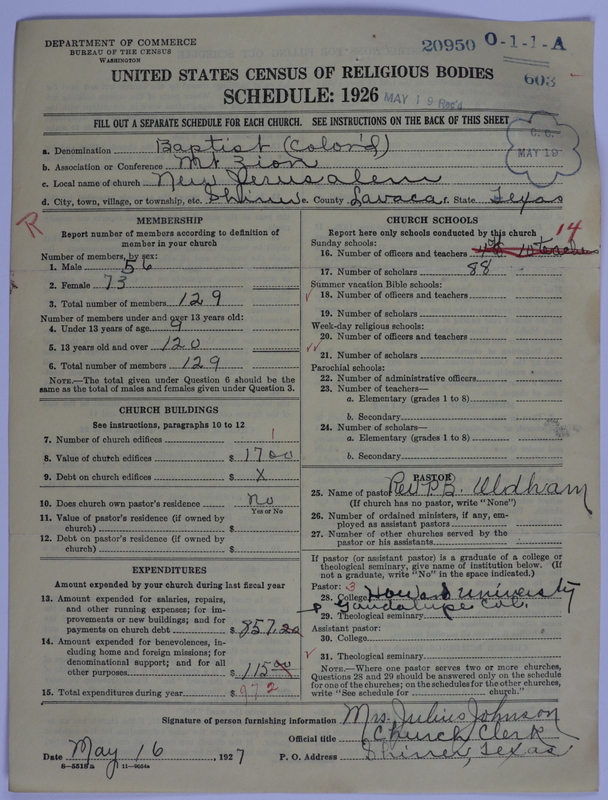 DEPARTMENT OF COMMERCE
BUREAU OF THE CENSUS
WASHINGTON
20950 0-1-1-A
603
UNITED STATES CENSUS OF RELIGIOUS BODIES
SCHEDULE: 1926
MAY 19 Rec'd
FILL OUT A SEPARATE SCHEDULE FOR EACH CHURCH. SEE INSTRUCTIONS ON THE BACK OF THIS SHEET
C. C.
MAY 19
a. Denomination Baptist (Colon'd)
b. Association or Conference Mt Zion
c. Local name of church New Jerusalem
d. City, town, village, or township, etc. Shiner e. County Lavaca f. State Texas
R
MEMBERSHIP
Report number of members according to definition of
member in your church
Number of members, by sex:
1. Male 56
2. Female 73
3. Total number of members 129
Number of members under and over 13 years old:
4. Under 13 years of age 9
5. 13 years old and over 120
6. Total number of members 129
NOTE.—The total given under Question 6 should be the
same as the total of males and females given under Question 3.
CHURCH BUILDINGS
See instructions, paragraphs 10 to 12
7. Number of church edifices 1
8. Value of church edifices $ 1700
9. Debt on church edifices $ X
10. Does church own pastor's residence No
Yes or No
11. Value of pastor's residence (if owned by
church) $
12. Debt on pastor's residence (if owned by
church) $
EXPENDITURES
Amount expended by your church during last fiscal year
13. Amount expended for salaries, repairs,
and other running expenses; for im-
provements or new buildings; and for
payments on church debt $ 857.20
14. Amount expended for benevolences, in-
cluding home and foreign missions; for
denominational support; and for all
other purposes $ 115.00
15. Total expenditures during year $ 972
CHURCH SCHOOLS
Report here only schools conducted by this church
14
Sunday schools:
16. Number of officers and teachers 10 teachers
17. Number of scholars 88
Summer vacation Bible schools:
18. Number of officers and teachers
19. Number of scholars
Week-day religious schools:
20. Number of officers and teachers
21. Number of scholars
Parochial schools:
22. Number of administrative officers
23. Number of teachers—
a. Elementary (grades 1 to 8)
b. Secondary
24. Number of scholars—
a. Elementary (grades 1 to 8)
b. Secondary
PASTOR
25. Name of pastor Rev P. B. Oldham
(If church has no pastor, write "None")
26. Number of ordained ministers, if any, em-
ployed as assistant pastors
27. Number of other churches served by the
pastor or his assistants
If pastor (or assistant pastor) is a graduate of a college or
theological seminary, give name of institution below. (If
not a graduate, write "No" in the space indicated.)
Pastor: 3
28. College Howard University
29. Theological seminary Gaudalupe Col.
Assistant pastor:
30. College
31. Theological seminary
NOTE.—Where one pastor serves two or more churches,
Questions 28 and 29 should be answered only on the schedule
for one of the churches; on the schedules for the other churches,
write "See schedule for church."
Signature of person furnishing information Mrs. Julius Johnson
Official title Church Clerk
Date May 16 1927 P. O. Address Shiner, Texas
8—5518a 11—9554a